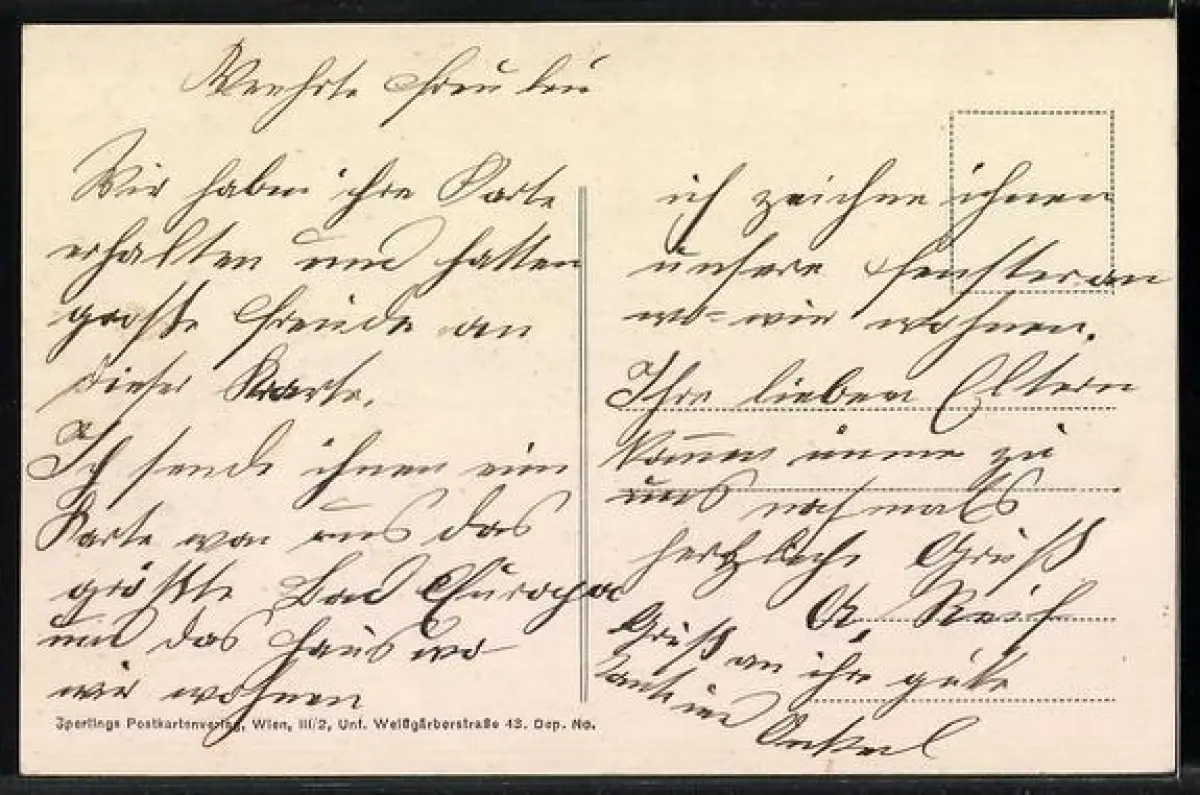 Weehrte Freulein
Wir haben ihre Karte
erhalten und hatten
große Freude an
dieser Karte.
Ich sende ihnen eine
Karte von uns das
größte Bad Europa
und das Haus wo
wir wohnen
ich zeichne ihnen
unsere Fenster an
wo wir wohnen.
Ihre lieben Eltern
kommen imme zu
uns nochmals
hertzliche Gruß
Gruß an ihre gute
Tante und
Onkel
Sperlings Postkartenverlag, Wien, III/2, Unt. Weißgärberstraße 43. Dep. No.